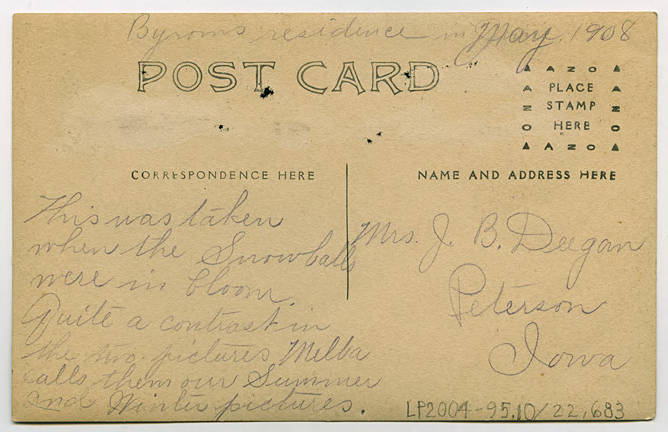 Byroms residence in May. 1908
POST CARD
AZO
PLACE
STAMP
HERE
AZO
AZO
AZO
CORRESPONDENCE HERE
NAME AND ADDRESS HERE
This was taken
when the Snowballs
were in bloom.
Quite a contrast in
the two pictures Melba
calls them our Summer
and Winter pictures.
Mrs. J. B. Deegan
Peterson
Iowa
LP2004-95.10/22,683